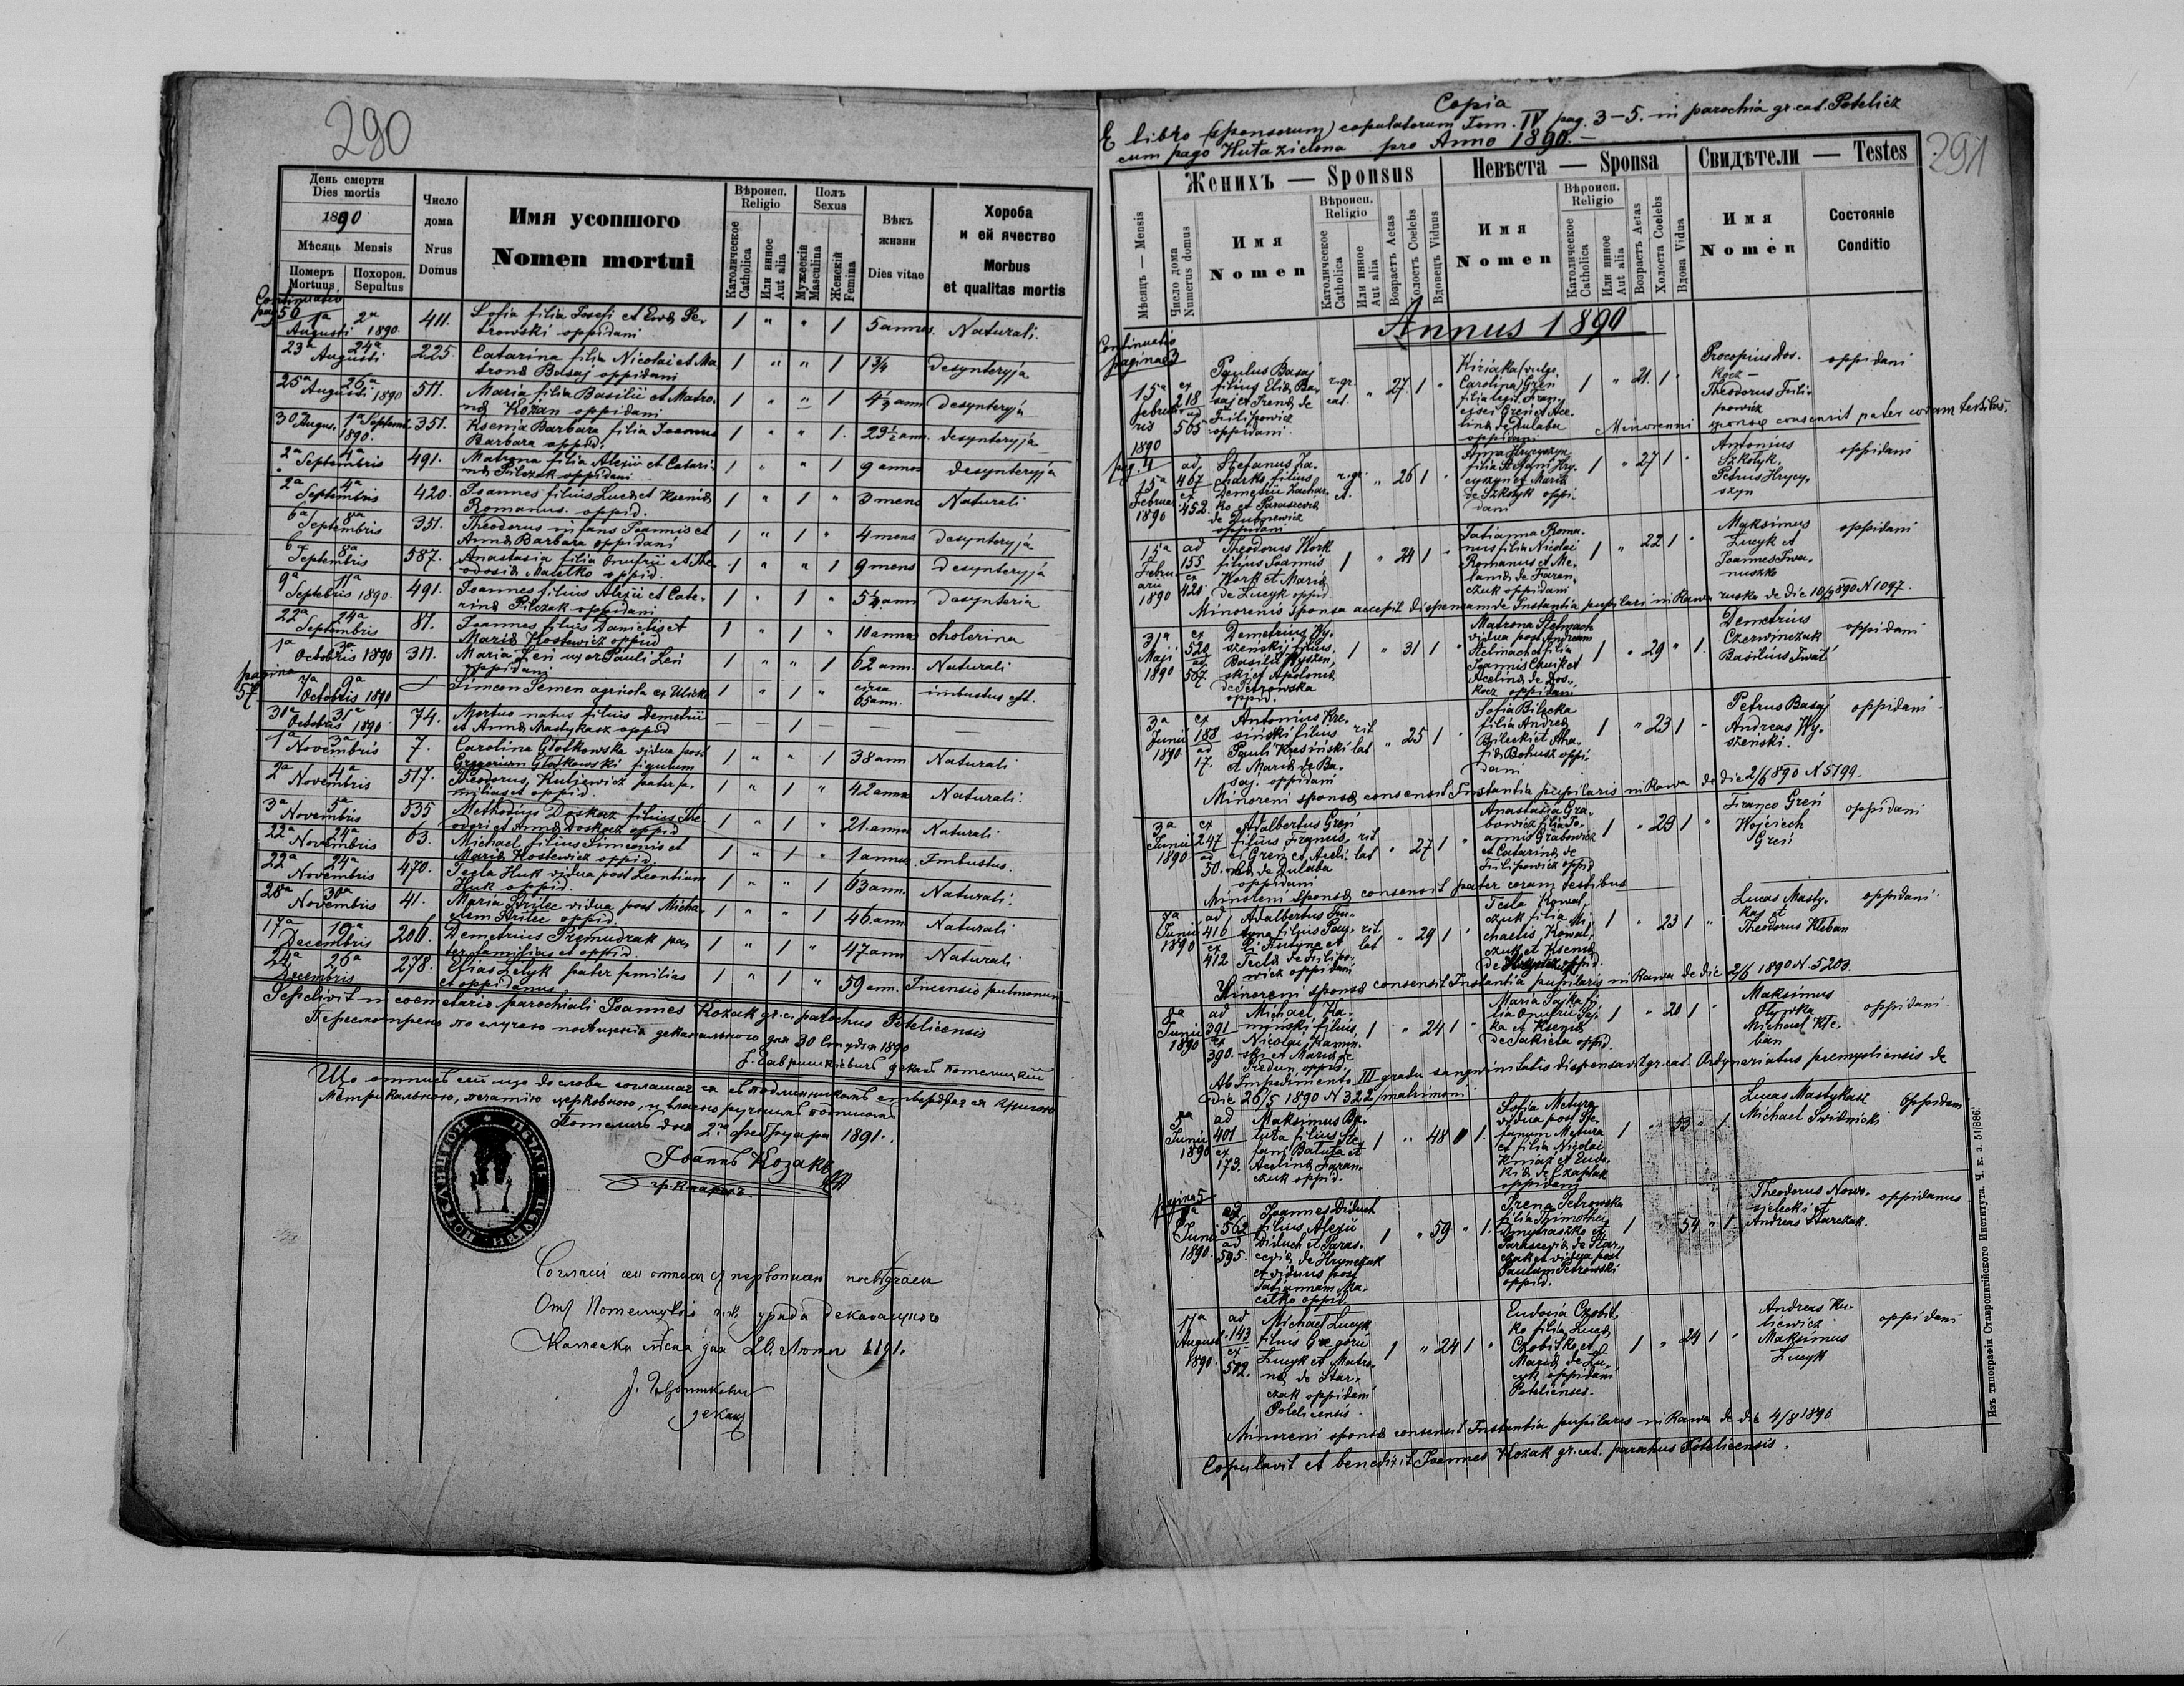 290
День смерти
Dies mortis
1890
Мѣсяць Mensis
Померъ Похорон.
Mortuus Sepultus
Число дома
Nrus Domus
Имя усопшого
Nomen mortui
Вѣроисп.
Religio
Католическое Catholica
Или инное Aut alia
Полъ
Sexus
Мужескій Masculina
Женскій Femina
Вѣкъ жизни
Dies vitae
Хороба и ей ячество
Morbus et qualitas mortis
Continuatio pag 56
1ª Augusti 2ª 1890 411. Sofia filia Josefi et Evȩ Petrowski oppidani 1 " " 1 5 annor. Naturali.
23ª 24ª Augusti 225. Catarina filia Nicolai et Matronȩ Basaj oppidani 1 " " 1 1¾ desynteryja
25ª 26ª Augusti 1890 511. Maria filia Basilii et Matronȩ Kożan oppidani 1 " " 1 ann desynteryja
30 Augus. 1ª Septemb. 1890. 351. Ksenia Barbara filia Joannis Barbara oppid. 1 " " 1. 23½ ann. desynteryja
2ª 4ª Septembris 491. Matrona filia Alexii et Catarinȩ Pilczak oppidani 1 " " 1 9 annor desynteryja
2ª 4ª Septembris 420. Joannes filius Lucȩ et Kseniȩ Romanus. oppid. 1 " 1 " 3 mens Naturali
6ª 8ª Septembris 351. Theodorus infans Joannis et Annȩ Barbara oppidani 1 " 1 " 4 mens desynteryja
6ª 8ª Septembris 587. Anastasia filia Onufrii et Theodosiȩ oppid. 1 " " 1 9 mens desynteryja
9ª 11ª Septebris 1890. 491. Joannes filius Alexii et Catarinȩ Pilczak oppidani 1 " 1 " 5¼ ann desynteria
22ª 24ª Septembris 87. Joannes filius Danielis et Mariȩ Kostewicz oppid 1 " 1 " 10 annor cholerina
1ª 3ª Octobris 1890 311. Maria Leń uxor Pauli Leń oppidani 1 " " 1 62 ann. Naturali
pagina 57
7ª 9ª Octobris 1890 Simeon Semen agricola ex Ulicko 1 " 1 " circa 65 ann. imbustus est.
31ª 31ª Octobris 1890 74. Mortuo natus filius Demetrii et Annȩ Mastykasz oppid — — 1 — — —
1ª 3ª Novembris 7. Carolina Głotkowska vidua post Gregorium Głotkowski figulum 1 " " 1 38 ann Naturali
2ª 4ª Novembris 517. Theodorus Kuliewicz pater familias et oppid. 1 " 1 " 42 annor Naturali.
3ª 5ª Novembris 535 Methodius Doskocz filius Theodori et Annȩ Doskocz oppid 1 " 1 " 21. annor Naturali
22ª 24ª Novembris 63. Michael filius Simeonis et Mariȩ Kostewicz oppid. 1 " 1 " 1 annor. Imbustus.
22ª 24ª Novembris 470. Tecla Huk vidua post Leontium Huk oppid. 1 " " 1 63 ann. Naturali.
28ª 30ª Novembris 41. Maria Strilec vidua post Michaelem Strilec oppid. 1 " " 1 46 ann Naturali
17ª 19ª Decembris 206. Demetrius Premudrak pater familias et oppid. 1 " 1 " 47 ann Naturali
24ª 26ª Decembris 278. Elias Zelyk pater familias et oppidanus 1 " 1 " 59 ann. Incensio pulmonum
Sepelivit in coemetario parochiali Joannes Kozak gr. c. parochus Potelicensis
Пересмотрено по случаю посѣщенія деканального дня 30 Студня 1890
деканъ Потелицкій
Що отпись сей що до слова соглашаєся съ подлинникомъ стверджаєся книгою
Метрикальною, печатію церковною, и власноручнымъ подписомъ
Потеличъ дня 2го Фебруара 1891.
Іоаннъ Козакъ
гр.к. парохъ
Согласіе сеи отписи съ первописью посвѣдчаєся
Отъ Потелицкого уряда деканального
Каменка лѣсна дня 20 Лютого 1891.
деканъ
291
Copia
E libro (sponsorum) copulatorum Tom. IV pag. 3–5. in parochia gr. cat. Potelicz
cum pago Hutazielona pro Anno 1890.—
Женихъ — Sponsus
Невѣста — Sponsa
Свидѣтели — Testes
Мѣсяць — Mensis
Число дома Numerus domus
Имя Nomen
Вѣроисп. Religio
Католическое Catholica
Или инное Aut alia
Возрастъ Aetas
Холостъ Coelebs
Вдовецъ Viduus
Имя Nomen
Вѣроисп. Religio
Католическое Catholica
Или инное Aut alia
Возрастъ Aetas
Холоста Coelebs
Вдова Vidua
Имя Nomen
Состояніе Conditio
Annus 1890
Continuatio paginae 3
15ª februarii 1890 ex 218 ad 565 Paulus Basaj filius Eliȩ Basaj et Irenȩ de Filipowicz oppidani r. gr. cat. " 27. 1 " Kiriaka (vulgo Carolina) Greń filia legit. Francisci Greń et Acelinȩ de Dulaba oppidani 1 " 21. 1 " Procopius Doskocz — Theodorus Filipowicz oppidani
Minorenni sponsȩ consensit pater coram testibus.
pag. 4
15ª Februar 1890 ad 467 ex 452. Stefanus Zacharko filius Demetrii Zacharko et Parasceviȩ de Dubniewicz oppidani r. gr. c. " 26 1 " Anna Hrycyszyn filia Stefani Hrycyszyn et Mariȩ de Szkołyk oppidani 1 " 27 1 " Antonius Szkołyk. Petrus Hrycyszyn oppidani
15ª Februarii 1890 ad 155 ex 420 Theodorus Work filius Joannis Work et Mariȩ de Łucyk oppid 1 " 24 1 " Tatianna Romanus filia Nicolai Romanus et Melaniȩ de Faranczuk oppidani 1 " 22 1 " Maksimus Łucyk et Joannes Iwanuszko oppidani
Minorenis sponsa accepit dispensam de Instantia pupilari in Rawa ruska de die 10/2 890 N 1097.
31ª Maji 1890 ex 520 ad 567 Demetrius Wyszenski filius Basilii Wyszenski et Apoloniȩ de Petrowska oppid. 1 " 31 1 " Matrona Stelmach vidua post Andream Stelmach et filia Joannis et Acelinȩ de Doskocz oppidani 1 " 29 " 1 Demetrius Czerwinczuk Basilius Iwat oppidani
3ª Junii 1890 ex 188 ad 17. Antonius Kresiński filius Pauli Kresiński et Mariȩ de Basaj. oppidani rit lat " 25 1 " Sofia Bilecka filia Andreȩ Bilecki et Ahafiȩ Bohusz oppidani 1 " 23 1 " Petrus Basaj Andreas Wyszenski. oppidani
Minoreni sponsȩ consensit Instantia pupilaris in Rawa de die 2/6 890 N 5199.
3ª Junii 1890 ex 247 ad 50. Adalbertus Greń filius Francisci Greń et Acelinȩ de Dulaba oppidani rit lat " 27 1 " Anastasia Grabowicz filia Joannis Grabowicz et Catarinȩ de Filipowicz oppid 1 " 23 1 " Franco Greń Wojciech Greń oppidani
Minoreni sponsȩ consensit pater coram testibus
7ª Junii 1890 ad 416 ex 412 Adalbertus filius Pauli et Teclȩ de Filipowicz oppidani rit lat " 29 1 " Tecla Kowalczuk filia Michaelis Kowalczuk et Kseniȩ oppid. 1 " 23 1 " Lucas Mastykasz et Theodorus Kleban oppidani.
Minoreni sponsȩ consensit Instantia pupilaris in Rawa de die 2/6 1890 N. 5203.
8ª Junii 1890 ad 391 ex 390. Michael Kaminski filius Nicolai Kaminski et Mariȩ de Fedun oppid. 1 " 24 1 " Maria Sajka filia Onufrii Sajka et Kseniȩ de Jakieta oppid. 1 " 20 1 " Maksimus Michael Kleban oppidani.
Ab Impedimento III gradu sanguinitatis dispensavit gr. cat. Ordynariatus premysliensis de
die 26/5 1890 N 322/matrimoni
8ª Junii 1890 ad 401 ex 173. Maksimus Batuta filius Stefani Batuta et Acelinȩ Faranczuk oppid. 1 " 48 " 1. Sofia Metyra vidua post Stefanum Metyra et filia Nicolai Kniaz et Eudokiȩ de Czaplak oppidani 1 " 53 " 1 Lucas Mastykasz Michael Swidnicki oppidani
pagina 5
8ª Junii 1890. ex 562 ad 595. Joannes Diduch filius Alexii Diduch et Parasceviȩ de Hrynczak et viduus post Tatiannam Macełko oppid 1 " 59 " 1. Irena Petrowska filia Timothei Dmytraszko et Parasceviȩ de Starczak et vidua post Paulum Petrowski oppid. 1 " 54 " 1 Theodorus Nowosielecki et Andreas Starczak. oppidanus
17ª August. 1890. ad 143 ex 502. Michael Łucyk filius Gregorii Łucyk et Matronȩ de Starczak oppidani Potelicensis 1 " 24 1 " Eudoxia Czobitko filia Lucȩ Czobitko et Mariȩ de Łucyk oppidani Potelicenses. 1 " 24 1 " Andreas Kuliewicz Maksimus Łucyk oppidani
Minoreni sponsȩ consensit Instantia pupilaris in Rawa de die 4/8 1890
Copulavit et benedixit Joannes Kozak gr. cat. parochus Potelicensis.
Изъ типографіи Ставропигійского Института. Ч. к. з. 51/886.